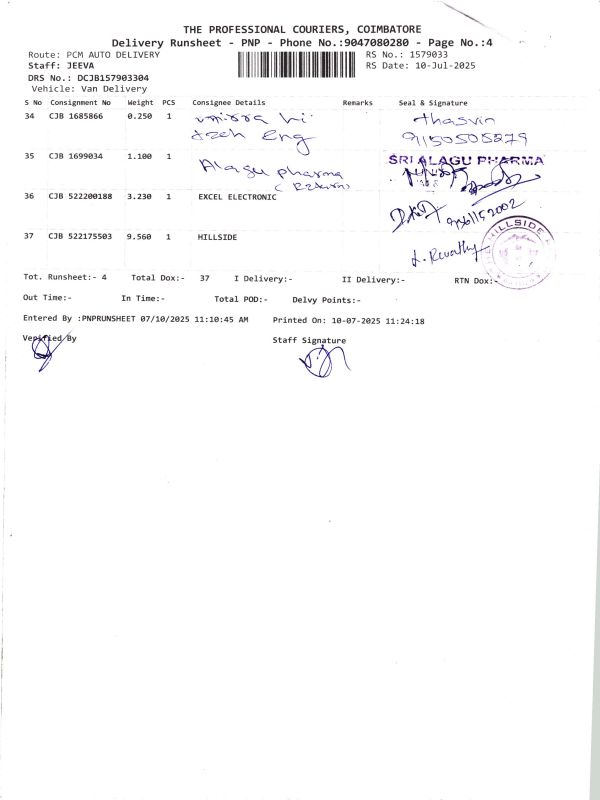 THE PROFESSIONAL COURIERS, COIMBATORE
Delivery Runsheet - PNP - Phone No.:9047080280 - Page No.:4
Route: PCM AUTO DELIVERY
RS No.: 1579033
Staff: JEEVA
RS Date: 10-Jul-2025
DRS No.: DCJB157903304
Vehicle: Van Delivery
S No Consignment No Weight PCS Consignee Details Remarks Seal & Signature
34 CJB 1685866 0.250 1 hi Thasvin
Eng 9150505279
35 CJB 1699034 1.100 1 Alagu pharma SRI ALAGU PHARMA
(Return)
36 CJB 522200188 3.230 1 EXCEL ELECTRONIC
37 CJB 522175503 9.560 1 HILLSIDE HILLSIDE
Tot. Runsheet:- 4 Total Dox:- 37 I Delivery:- II Delivery:- RTN Dox:-
Out Time:- In Time:- Total POD:- Delvy Points:-
Entered By :PNPRUNSHEET 07/10/2025 11:10:45 AM Printed On: 10-07-2025 11:24:18
Verified By Staff Signature